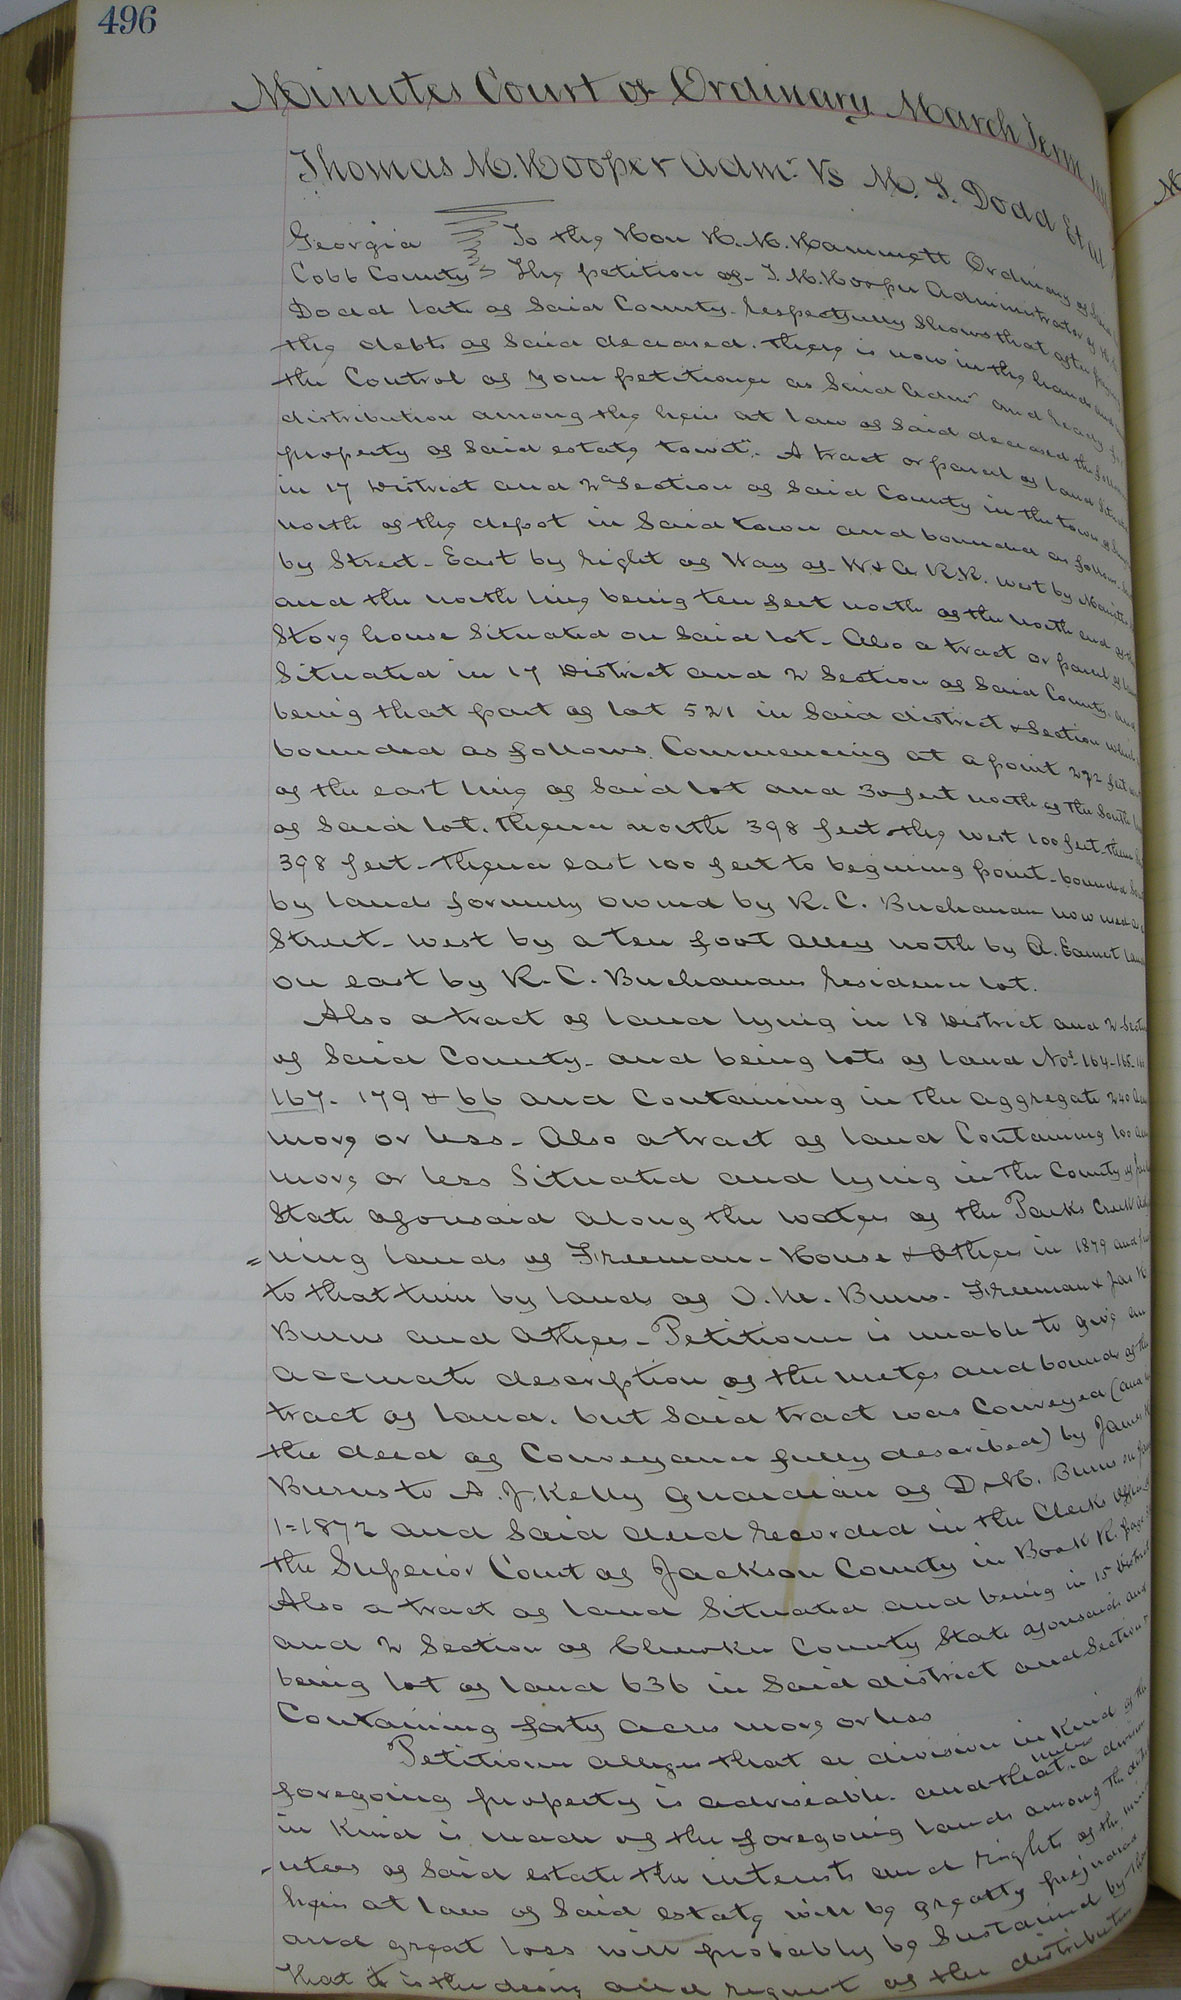 496
Minutes Court of Ordinary March Term
Thomas M. Hooper Admr. Vs M. S. Dodd Et al
Georgia To the Hon H. M. Hammett Ordinary of Said
Cobb County The petition of T. M. Hooper Administrator of
Dodd late of Said County. respectfully Shows that after paying
the debts of Said deceased. there is now in the hands and
the Control of your petitioner as Said Admr and ready for
distribution among the heirs at law of Said deceased the following
property of Said estate towit: A tract or parcel of land Situated
in 17 District and 2d Section of Said County in the town of
north of the depot in Said town and bounded as follows.
by Street. East by right of Way of W & A R.R. West by
and the north line being ten feet north of the north end of the
Store house Situated on Said lot. Also a tract or parcel of land
Situated in 17 District and 2 Section of Said County. and
being that part of lot 521 in Said district & Section which is
bounded as follows. Commencing at a point 292 feet
of the east line of Said lot and 30 feet north of the South line
of Said lot. thence north 398 feet the west 100 feet thence
398 feet. thence east 100 feet to begining point. bounded South
by lands formerly owned by R. C. Buchanan now used as a
Street. West by a ten foot alley north by A. Earnest land
on east by R. C. Buchanans residence lot.
Also a tract of land lying in 18 District and 2 Section
of Said County. and being lots of land Nos. 164-165-
167. 179 & 66 and Containing in the aggregate 240 acres
more or less. Also a tract of land Containing 100 acres
more or less Situated and lying in the County of
State aforesaid along the waters of the Parks Creek
=ning lands of Freeman. House & Others in 1879 and
to that time by lands of O. M. Burns. Freeman & Jas
Burns and Others. Petitioner is unable to give an
accurate description of the metes and bounds of the
tract of land. but Said tract was Conveyed (and
the deed of Conveyance fully described) by James
Burns to A. J. Kelly Guardian of D. M. Burns on
1=1872 and Said deed recorded in the Clerks Office of
the Superior Court of Jackson County in Book R. page
Also a tract of land Situated and being in 15 District
and 2 Section of Cherokee County State aforesaid. and
being lot of land 636 in Said district and Section
Containing forty acres more or less
Petitioner alleges that a division in Kind of the
foregoing property is adviseable. and that unless a division
in Kind is made of the foregoing lands among the
utees of Said estate the interests and rights of the
heirs at law of Said estate will be greatly prejudiced
and great loss will probably be Sustained by them
That it is the desire and request of the distributees